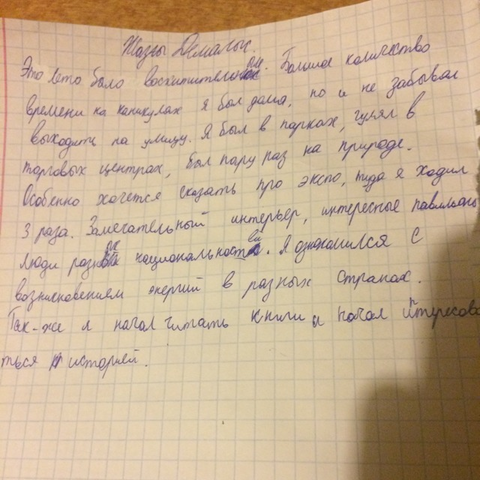 Жазғы Демалыс.
Это лето было восхитительным. Большое количество
времени на каникулах я был дома, но и не забывал
выходить на улицу. Я был в парках, гулял в
торговых центрах, был пару раз на природе.
Особенно хочется сказать про экспо, туда я ходил
3 раза. Замечательный интерьер, интересные павильоны
люди разных национальностей. Я ознакомился с
возникновением энергий в разных странах.
Так-же я начал читать книги и начал интересова
ться историей.